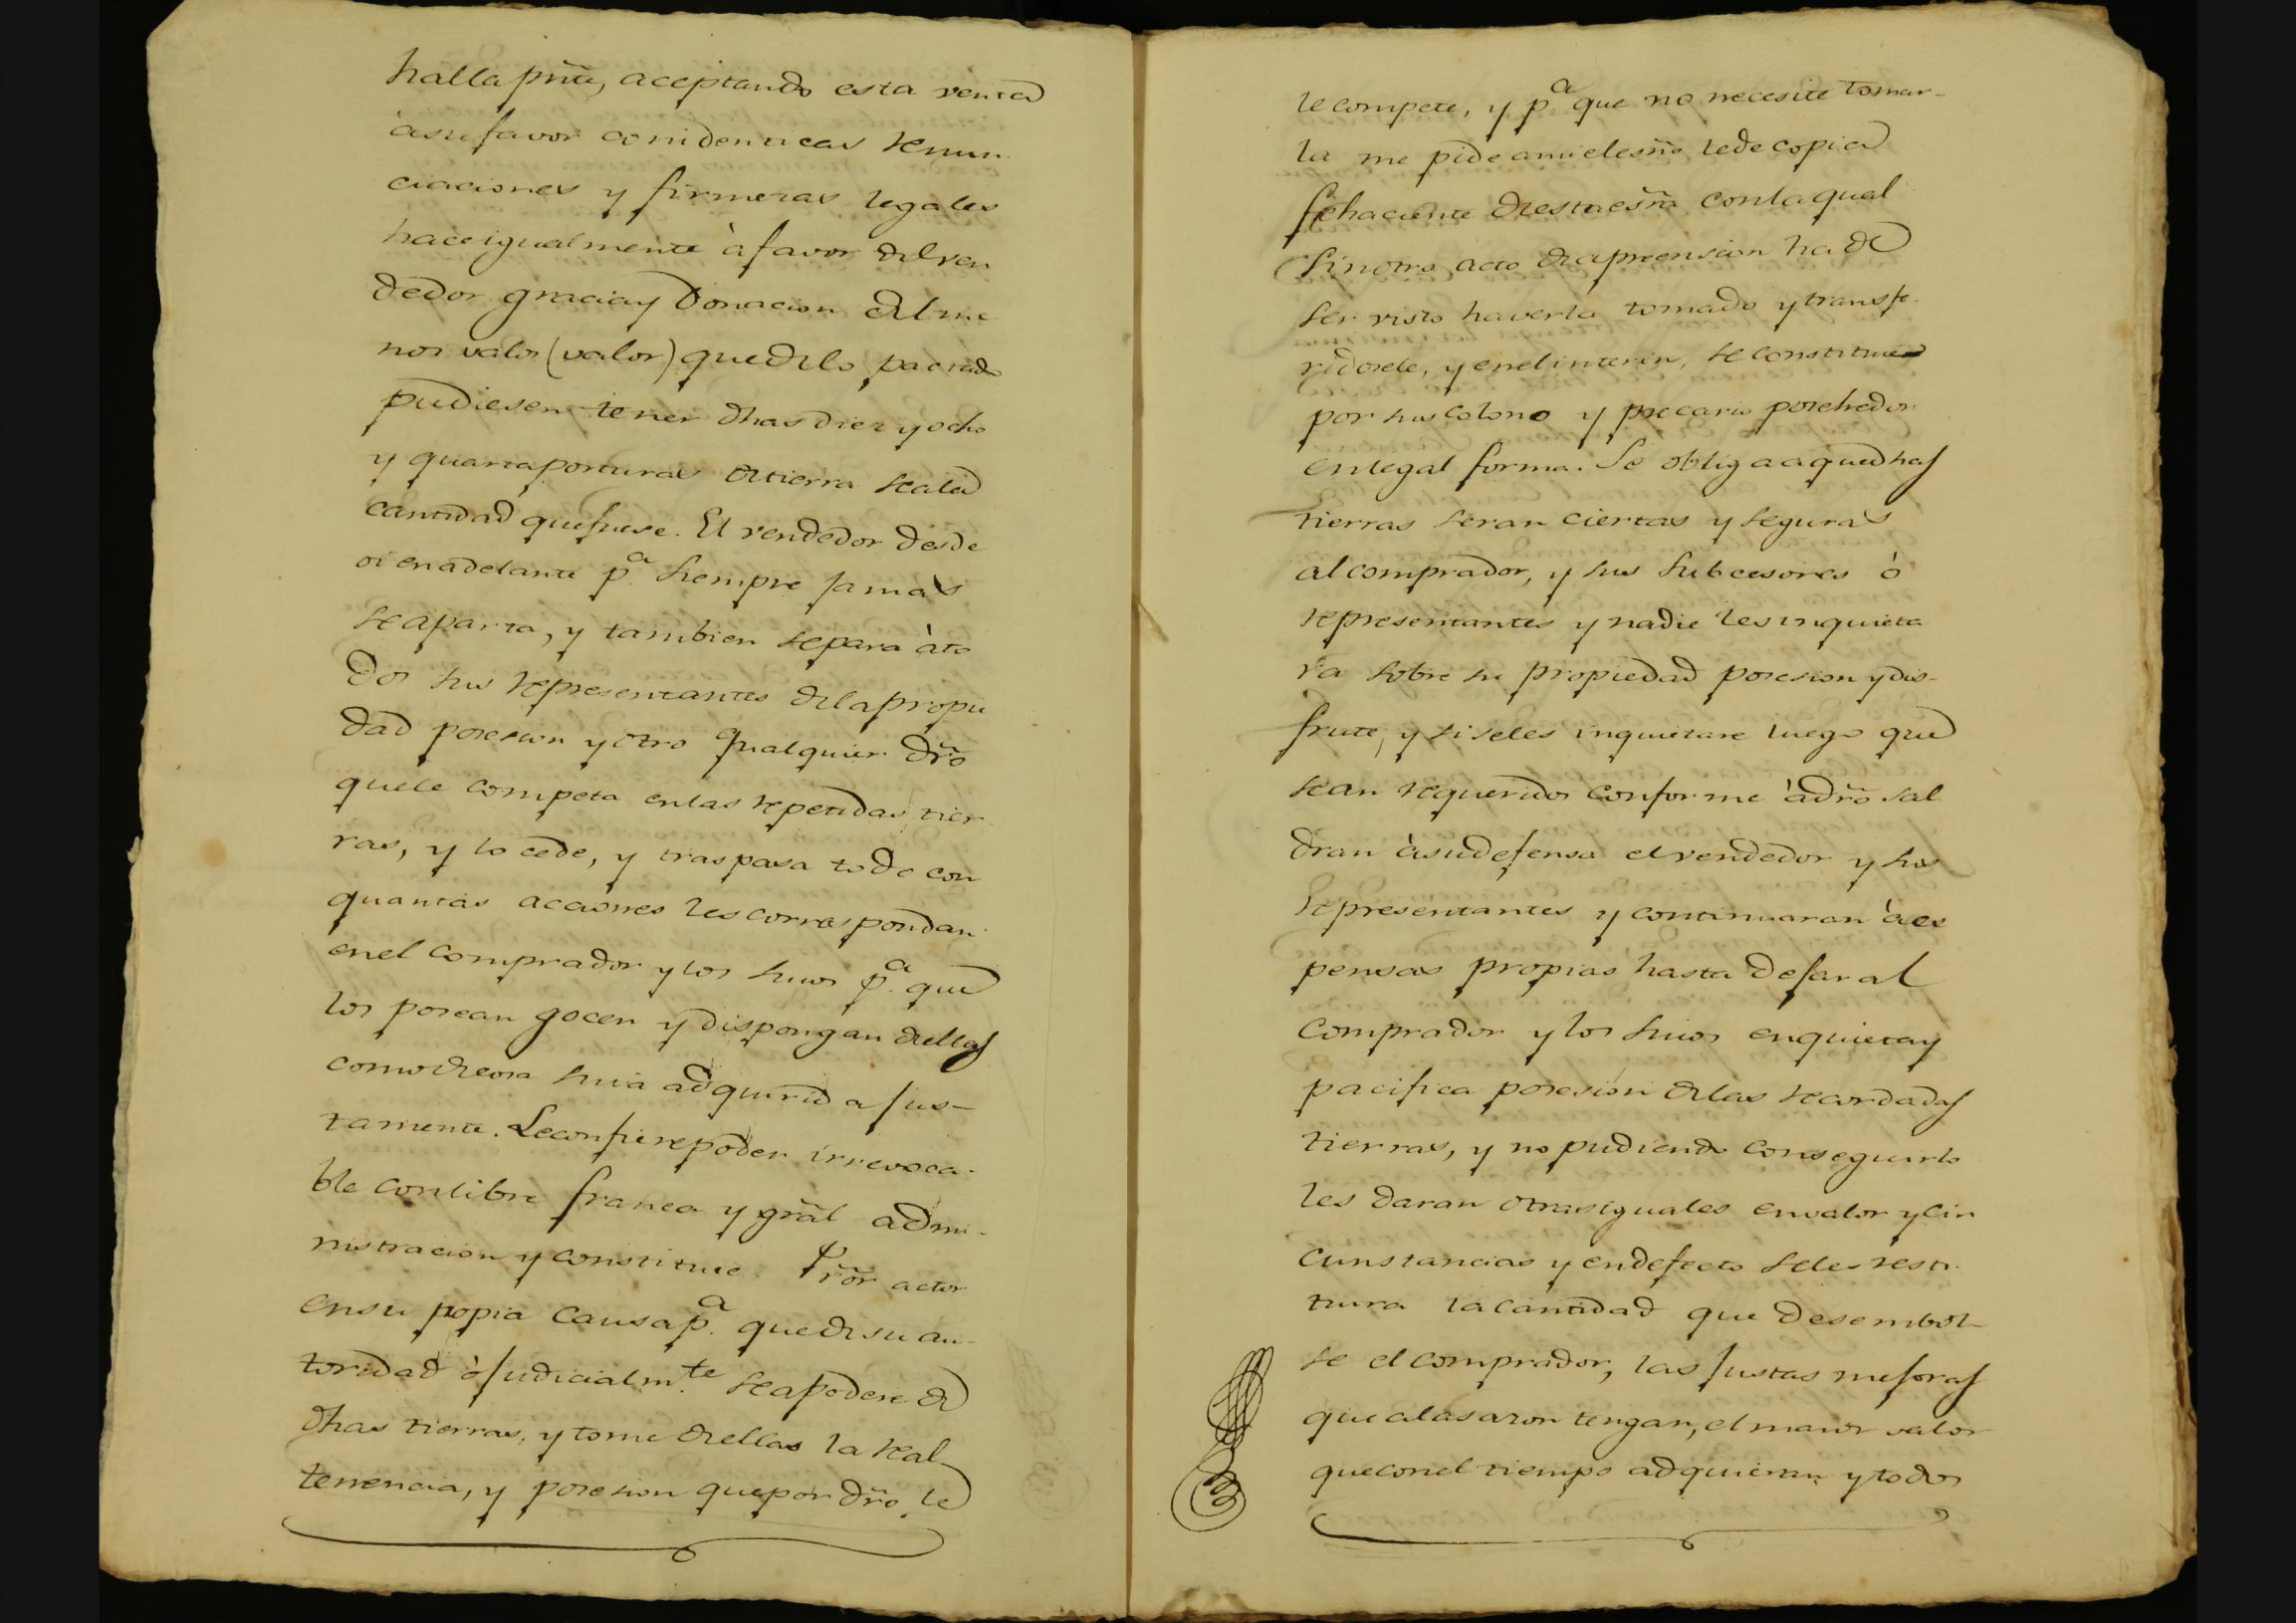 halla pñte, aceptando esta venta
à su favor con identicas renun
ciaciones y firmezas legales
hace igualmente à favor del ven
dedor gracia y Donacion del me
nor valor (valor) que de lo pactado
pudiesen tener dhas diez y ocho
y quarta porturas de tierra sea la
cantidad que fuese. El vendedor desde
oi en adelante pª. siempre jamàs
se aparta, y tambien separa à to
dos sus representantes de la propie
dad posesion y otro qualquier dr̃o
que le competa en las repetidas tier
ras, y lo cede, y traspasa todo con
quantas acciones les correspondan
en el comprador y los suios pª. que
los posean gocen y dispongan de ellas
como de cosa suia adquirida jus-
tamente. Le confiere poder irrevoca-
ble con libre franca y grãl admi-
nistracion y constituie Pr̃or actor
en su propia causa pª. que de su au-
toridad ò judicialm.te se apodere de
dhas tierras, y tome de ellas la real
tenencia, y posesion que por dr̃o le
le compete, y pª que no necesite tomar-
la me pide a mi el esñō le de copia
fehaciente de esta esr̃a con la qual
sin otro acto de apreension ha de
ser visto haverla tomado y transfe-
ridosele, y en el interin, se constituie
por su colono y precario posehedor
en legal forma. Se obliga a que dhas
tierras seran ciertas y seguras
al comprador, y sus subcesores ò
representantes y nadie les inquieta
ra sobre su propiedad posesion y dis-
frute, y si se les inquietare luego que
sean requeridos conforme à dr̃o sal
dran à su defensa el vendedor y sus
representantes y continuaran à es
pensas propias hasta dejar al
comprador y los suios en quieta y
pacifica posesion de las recordadas
tierras, y no pudiendo conseguirlo
les daran otras iguales en valor y cir
cunstancias y en defecto se les resti
tuira la cantidad que desembol-
se el comprador, las justas mejoras
que a la sazon tengan, el maior valor
que con el tiempo adquieran y todos